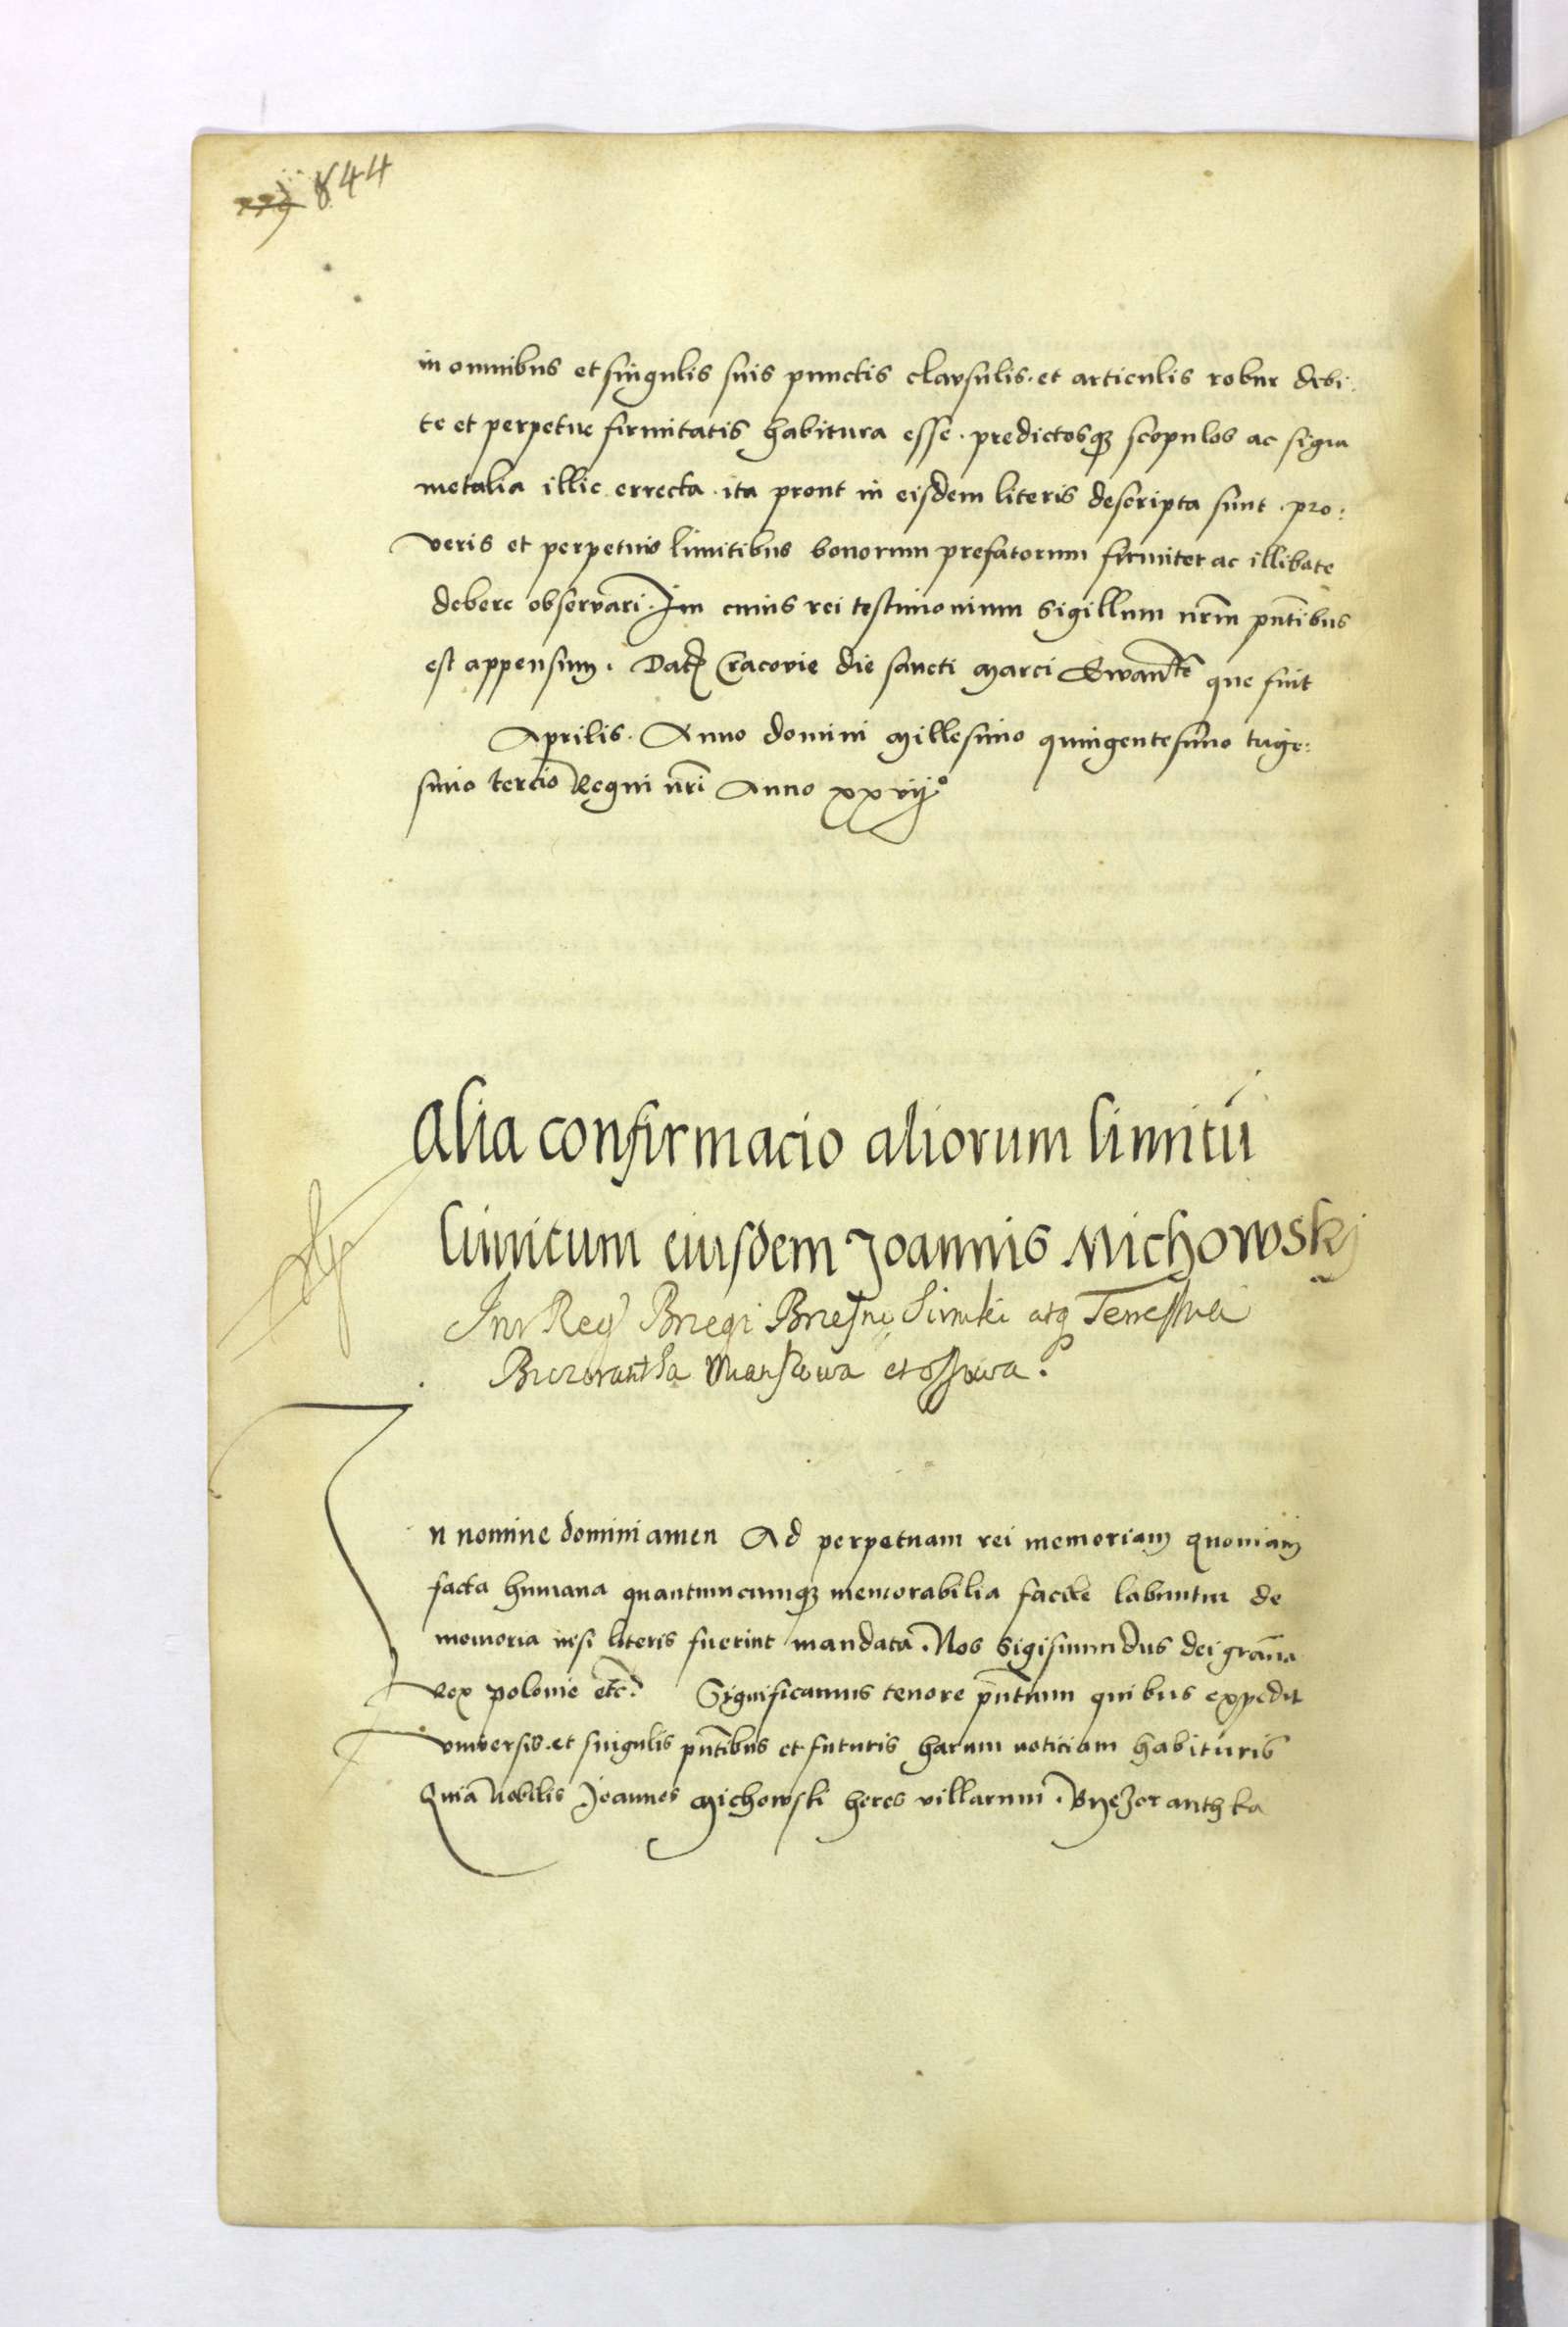 844
in omnibus et singulis suis punctis clausulis. et articulis robur debi:
te et perpetue firmitatis habitura esse. predictosq₃ scopulos ac signa
metalia illic errecta. ita prout in eisdem literis descripta sunt. pro:
veris et perpetuis limitibus bonorum prefatorum firmiter ac illibate
debere observari. Im cuius rei testimonium sigillum nrm̄ pn̄tibus
est appensum. Dat₃ Cracovie die sancti Marci Ewan^te que fuit
Aprilis. Anno domini Millesimo quingentesimo trige:
simo tercio Regni nr̄i Anno xxvij°
Alia confirmacio aliorum limitū
limitum eiusdem Joannis Michowskj
Brzegi Brzesny atq
et Ossowa.
n nomine domini amen Ad perpetuam rei memoriam Quoniam
facta humana quantumcumq₃ memorabilia facile labuntur de
memoria nisi literis fuerint mandata. Nos Sigismundus dei gra̅tia
Rex polonie etc̄. Significamus tenore pn̄tium quibus expedit
vniversis. et singulis pn̄tibus et futuris harum noticiam habituris
Quia Nobilis Joannes Michowski heres villarum. Byezoranthka